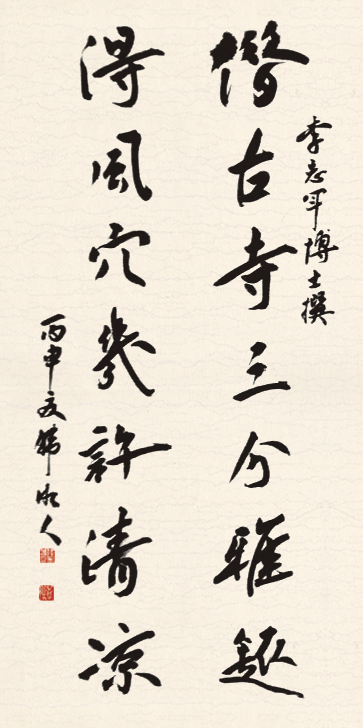 李志軍博士撰
借古寺三分雅趣
得風穴幾許清凉
丙申夏人